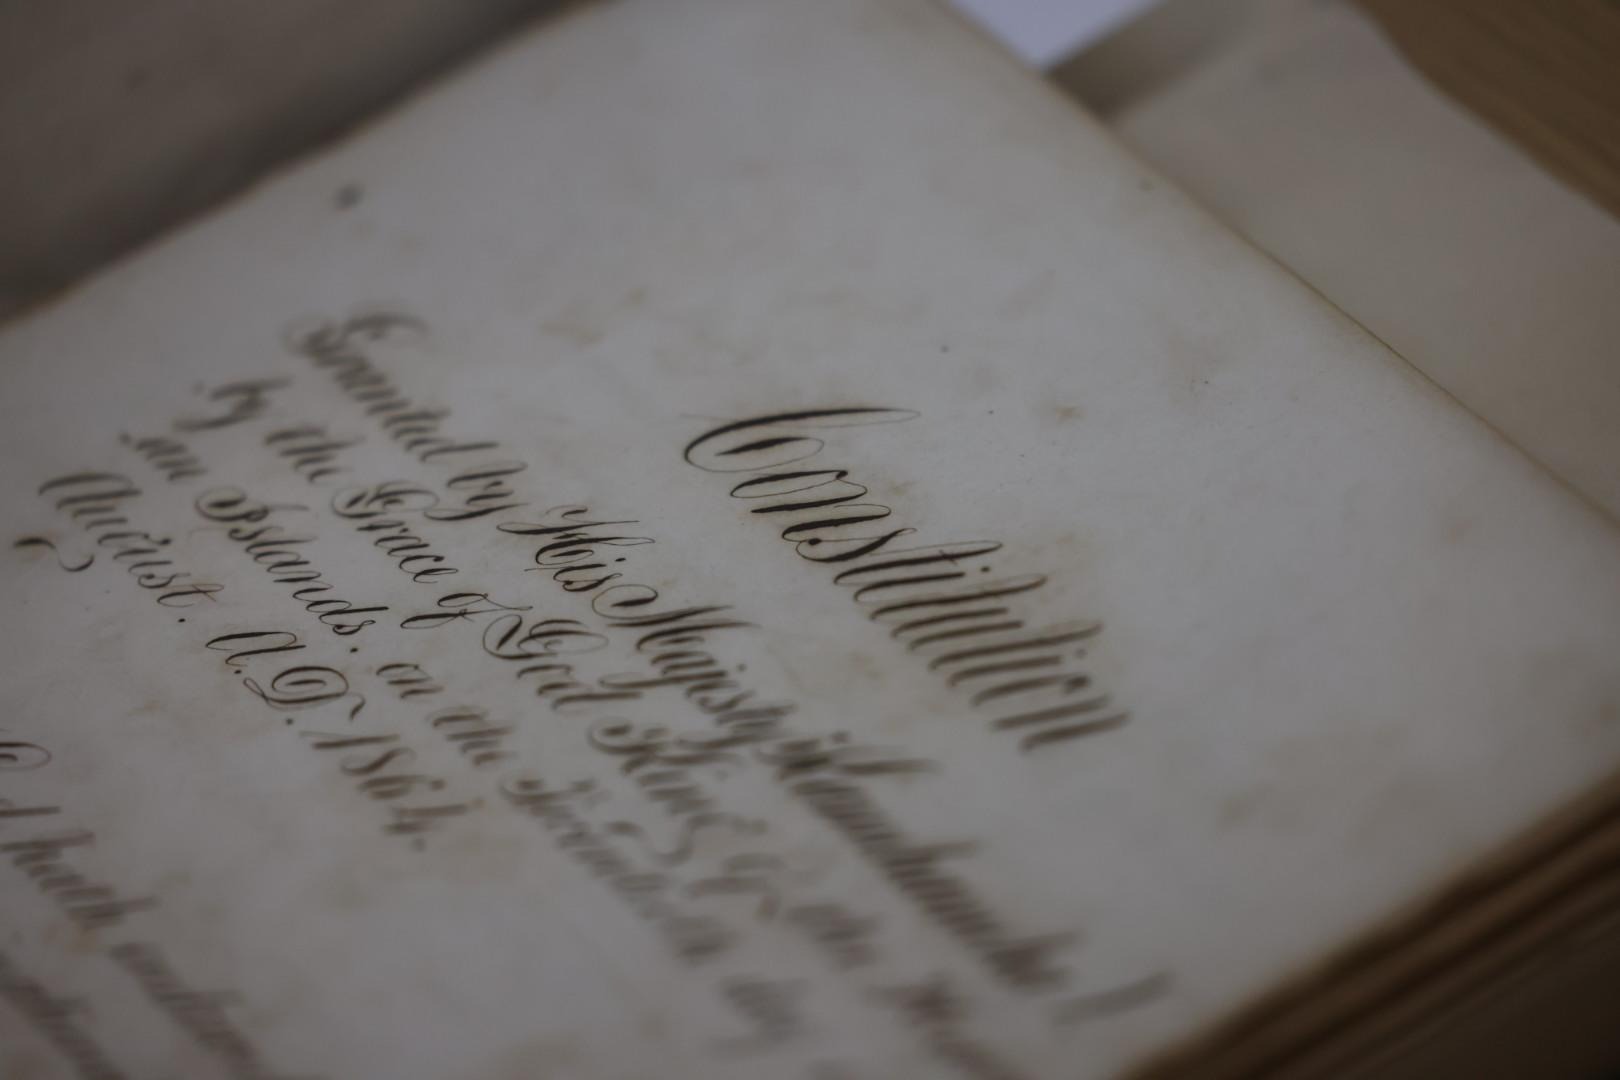 Constitution
Granted by His Majesty Kamehameha
by the Grace of God, King of the
an Islands, on the Twentieth day
August. A.D. 1864.
hath